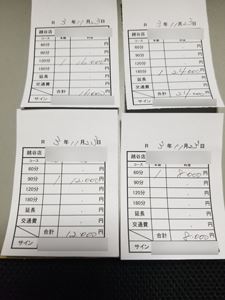 日 3年 11月 23日
越谷店
コース 本数 料金
60分 円
90分 円
120分 1 16,000 円
180分 円
延長 円
交通費 円
サイン 合計 16,000 円
日 3年 11月 23日
越谷店
コース 本数 料金
60分 円
90分 円
120分 円
180分 1 24,000 円
延長 円
交通費 円
サイン 合計 24,000 円
日 3年 11月 23日
越谷店
コース
60分 円
90分 1 12,000 円
120分 円
180分 円
延長 円
交通費 円
サイン 合計 12,000 円
日 3年 11月 23日
越谷店
コース
60分 1 8,000 円
90分 円
120分 円
180分 円
延長 円
交通費 円
サイン 合計 8,000 円